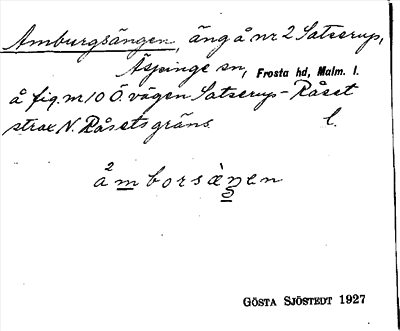 Amburgsängen, äng å nr 2 Satserup,
Äspinge sn, Frosta hd, Malm. l.
å fig. m 10 Ö. vägen Satserup - Råset
strax N. Råsets gräns. l.
²åmborsàŋen
GÖSTA SJÖSTEDT 1927